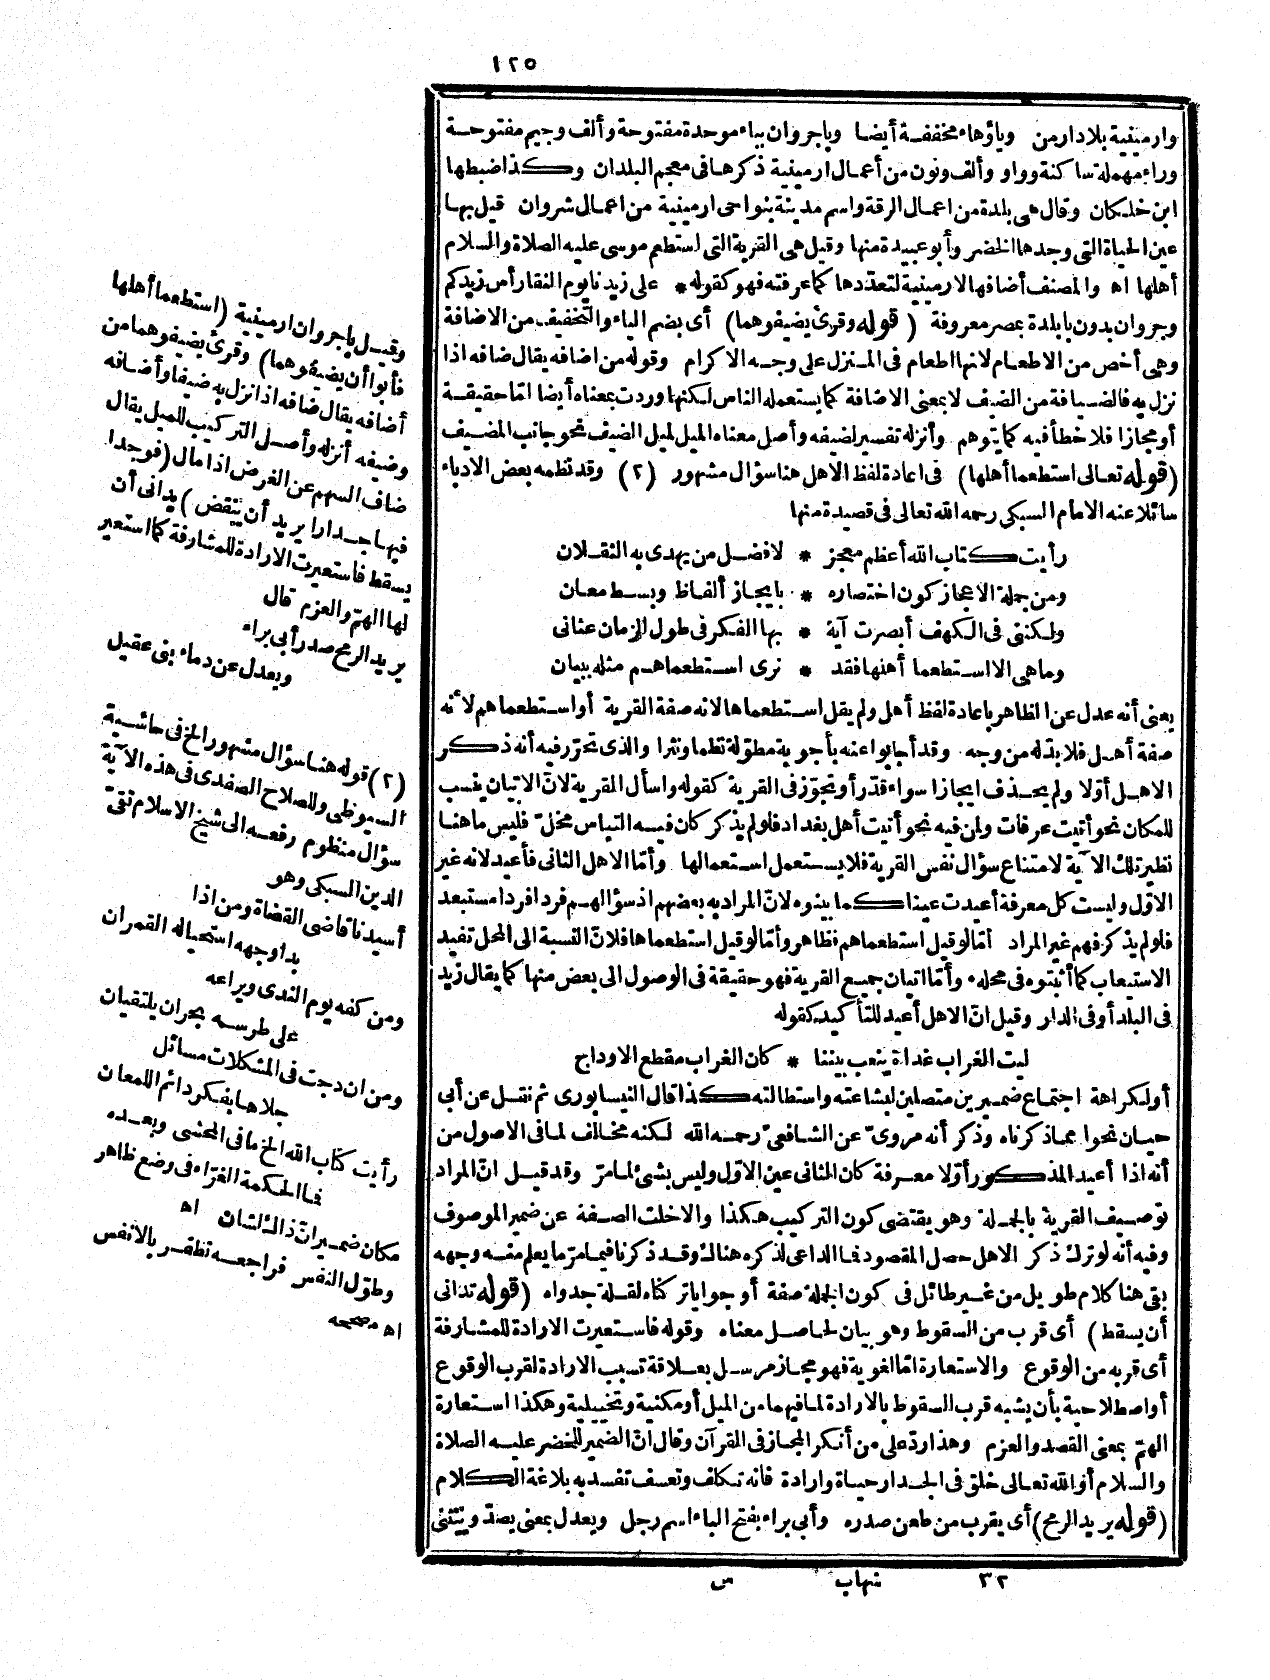 ١٢٥
وارمينية بلاد ارمن وياؤها مخففة أيضا وباجروان بباء موحدة مفتوحة وألف وجيم مفتوحة
وراء مهملة ساكنة وواو وألف ونون من أعمال ارمينية ذكرها فى معجم البلدان وكذا ضبطها
ابن خلكان وقال هى بلدة من اعمال الرقة واسم مدينة بنواحى ارمينية من اعمال شروان قيل بها
عين الحياة التى وجدها الخضر وأبو عبيدة منها وقيل هى القرية التى استطعم موسى عليه الصلاة والسلام
أهلها اه والمصنف أضافها لارمينية لتعددها كما عرفته فهو كقوله * على زيدنا يوم النقا رأس زيدكم
وجروان بدون با بلدة بمصر معروفة (قوله وقرئ يضيفوهما) أى بضم الياء والتخفيف من الاضافة
وهى أخص من الاطعام لانها اطعام فى المنزل على وجه الاكرام وقوله من اضافه يقال ضافه اذا
نزل به فالضيافة من الضيف لا بمعنى الاضافة كما يستعمله الناس لكنها وردت بمعناه أيضا امّا حقيقة
أو مجازا فلا خطأ فيه كما يتوهم وأنزله تفسير لضيفه وأصل معناه الميل لميل الضيف نحو جانب المضيف
(قوله تعالى استطعما أهلها) فى اعادة لفظ الاهل هنا سؤال مشهور (٢) وقد نظمه بعض الادباء
سائلا عنه الامام السبكى رحمه الله تعالى فى قصيدة منها
رأيت كتاب الله أعظم معجز * لافضل من يهدى به الثقلان
ومن جملة الاعجاز كون اختصاره * بايجاز ألفاظ وبسط معان
ولكننى فى الكهف أبصرت آية * بها الفكر فى طول الزمان عنانى
وما هى الا استطعما أهلها فقد * نرى استطعماهم مثله ببيان
يعنى أنه عدل عن الظاهر باعادة لفظ أهل ولم يقل استطعماها لانه صفة القرية أو استطعماهم لأنه
صفة أهل فلا بدّ له من وجه وقد أجابوا عنه بأجوبة مطوّلة نظما ونثرا والذى تحرّر فيه أنه ذكر
الاهل أوّلا ولم يحذف ايجازا سواء قدّر أو تجوّز فى القرية كقوله واسأل القرية لانّ الاتيان ينسب
للمكان نحو أتيت عرفات ولمن فيه نحو أتيت أهل بغداد فلو لم يذكر كان فيه التباس مخلّ فليس ما هنا
نظير تلك الآية لامتناع سؤال نفس القرية فلا يستعمل استعمالها وأمّا الاهل الثانى فأعيد لانه غير
الاوّل وليست كل معرفة أعيدت عينا كما بينوه لانّ المراد به بعضهم اذ سؤالهم فردا فردا مستبعد
فلو لم يذكر فهم غير المراد أمّا لو قيل استطعماهم فظاهر وأمّا لو قيل استطعماها فلانّ النسبة الى المحل تفيد
الاستيعاب كما أثبتوه فى محله وأمّا اتيان جميع القرية فهو حقيقة فى الوصول الى بعض منها كما يقال زيد
فى البلد أو فى الدار وقيل انّ الاهل أعيد للتأكيد كقوله
ليت الغراب غداة ينعب بيننا * كان الغراب مقطع الاوداج
أو لكراهة اجتماع ضميرين متصلين لبشاعته واستطالته كذا قال النيسابورى ثم نقل عن أبى
حيان نحوا مما ذكرناه وذكر أنه مروىّ عن الشافعىّ رحمه الله لكنه مخالف لما فى الاصول من
أنه اذا أعيد المذكور أوّلا معرفة كان الثانى عين الاوّل وليس بشئ لما مرّ وقد قيل انّ المراد
توصيف القرية بالجملة وهو يقتضى كون التركيب هكذا والاخلت الصفة عن ضمير الموصوف
وفيه أنه لو ترك ذكر الاهل حصل المقصود فما الداعى لذكره هنالك وقد ذكرنا فيما مرّ ما يعلم منه وجهه
بقى هنا كلام طويل من غير طائل فى كون الجملة صفة أو جوابا تركناه لقلة جدواه (قوله تدانى
أن يسقط) أى قرب من السقوط وهو بيان لحاصل معناه وقوله فاستعيرت الارادة للمشارفة
أى قربه من الوقوع والاستعارة امّا لغوية فهو مجاز مرسل بعلاقة تسبب الارادة لقرب الوقوع
أو اصطلاحية بأن يشبه قرب السقوط بالارادة لما فيهما من الميل أو مكنية وتخييلية وهكذا استعارة
الهمّ بمعنى القصد والعزم وهذا ردّ على من أنكر المجاز فى القرآن وقال انّ الضمير للخضر عليه الصلاة
والسلام أو الله تعالى خلق فى الجدار حياة وارادة فانه تكلف وتعسف تفسد به بلاغة الكلام
(قوله يريد الرمح) أى يقرب من طعن صدره وأبى براء بفتح الباء اسم رجل ويعدل بمعنى يصدّ وينثنى
وقيل باجروان ارمينية (استطعما أهلها
فأبوا أن يضيفوهما) وقرئ يضيفوهما من
أضافه يقال ضافه اذا نزل به ضيفا وأضافه
وضيفه أنزله وأصل التركيب للميل يقال
ضاف السهم عن الغرض اذا مال (فوجدا
فيها جدارا يريد أن ينقض) يدانى أن
يسقط فاستعيرت الارادة للمشارفة كما استعير
لها الهمّ والعزم قال
يريد الرمح صدر أبى براء
ويعدل عن دماء بنى عقيل
(٢) قوله هنا سؤال مشهور الخ فى حاشية
السيوطى وللصلاح الصفدى فى هذه الآية
سؤال منظوم رفعه الى شيخ الاسلام تقىّ
الدين السبكى وهو
أسيدنا قاضى القضاة ومن اذا
بدا وجهه استحيا له القمران
ومن كفه يوم الندى ويراعه
على طرسه بحران يلتقيان
ومن ان دجت فى المشكلات مسائل
جلاها بفكر دائم اللمعان
رأيت كتاب الله الخ ما فى المحشى وبعده
فما الحكمة الغرّاء فى وضع ظاهر
مكان ضمير انّ ذاك لشان اه
وطوّل النفس فراجعه تظفر بالانفس
اه مصححه
٣٢ شهاب س